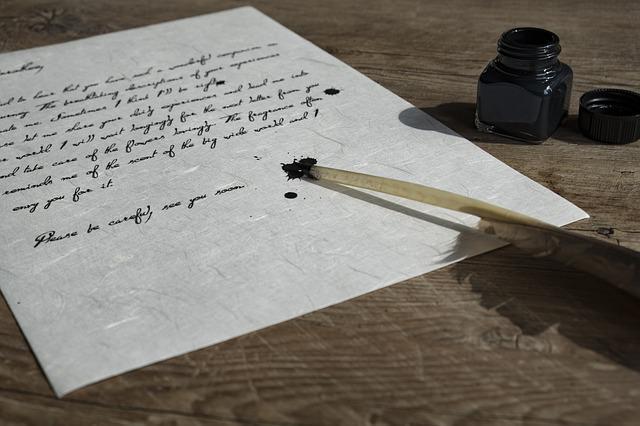 to hear that you have had a wonderful companion on
The breathtaking descriptions of your experiences
me. Sometimes I think I'll to
but me share your daily experiences and lead me into
world I will wait longingly for the next letter from you
and take care of the flowers lovingly. The fragrance often
reminds me of the scent of the big wide world and I
envy you for it.
Please be careful, see you soon